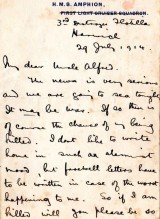 H.M.S. AMPHION.
FIRST LIGHT CRUISER SQUADRON.
3rd Flotilla
Harwich
29 July 1914.
My dear Uncle Alfred.
The news is very serious
and we are going to sea tonight.
It may be war. If so there is
of course the chance of my being
killed. I don't like to write
home in such an alarmist
mood, but farewell letters have
to be written in case of the worst
happening to me. So if I am
killed will you please be so